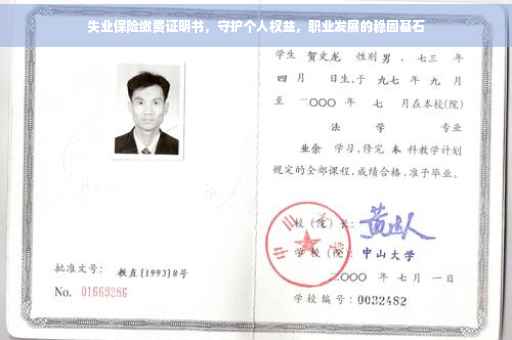 失业保险缴费证明书，守护个人权益，职业发展的稳固基石
学生 贺文龙 性别 男 ，七三 年
四 月 日生，于 九七 年 九 月
至 二〇〇〇 年 七 月在本校(院)
法 学 专业
业余 学习，修完 本 科教学计划
规定的全部课程，成绩合格，准予毕业。
校（院）长：
学 校（院）：中山大学
二〇〇〇 年 七 月 一 日
学校编号：0032482
批准文号： 教直[1993]8号
No. 01669286